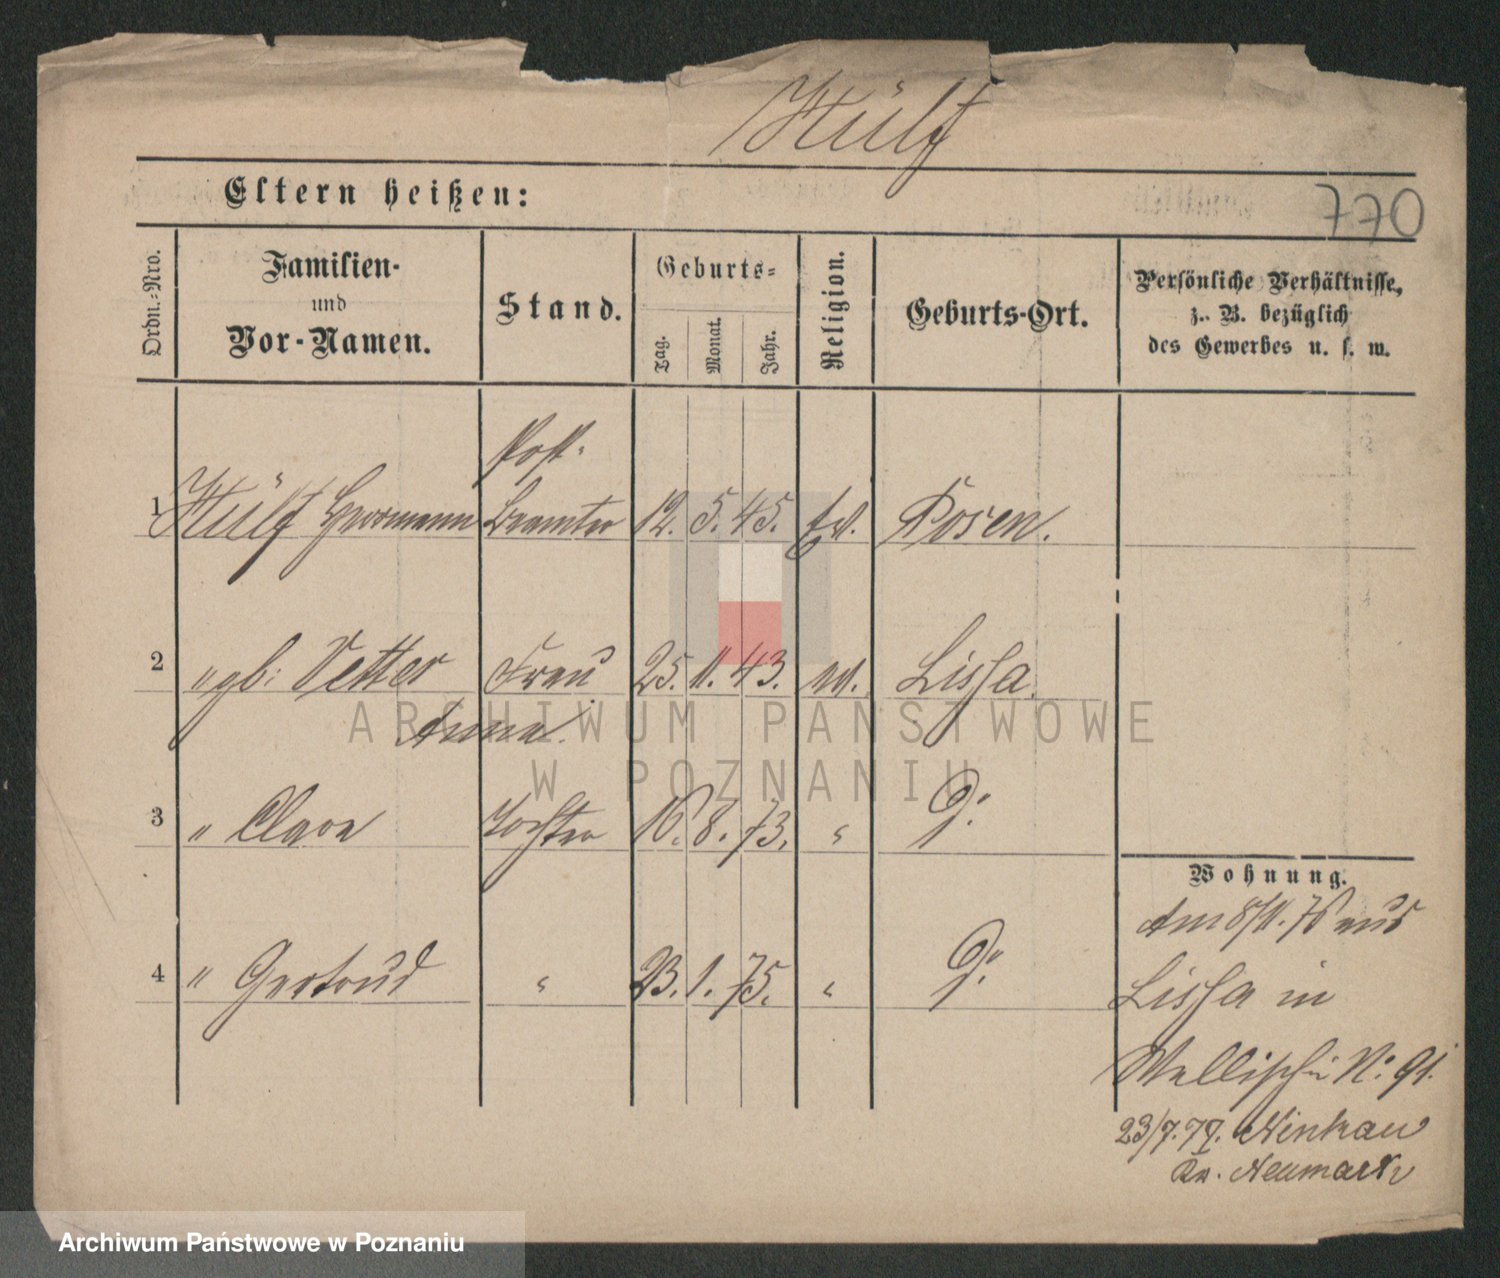 Hülf
Eltern heißen:
770
Ordn.-Nro.
Familien-
und
Vor-Namen.
Stand.
Geburts-
Tag.
Monat.
Jahr.
Religion.
Geburts-Ort.
Persönliche Verhältnisse,
z. B. bezüglich
des Gewerbes u. s. w.
Post-
1 Hülf Herrmann Beamter 12. 5. 45. ev. Posen.
2 " gb: Vetter Frau 25. 11. 43. ev. Lissa.
Anna.
3 " Clara Tochter 16. 8. 73. " do
4 " Gertrud " 23. 1. 75. " do
Wohnung.
Am 8/11. 76 aus
Lissa in
Wallischei No 91.
23/7. 77. Ninkau
Kr. Neumarkt
ARCHIWUM PAŃSTWOWE
W POZNANIU
Archiwum Państwowe w Poznaniu